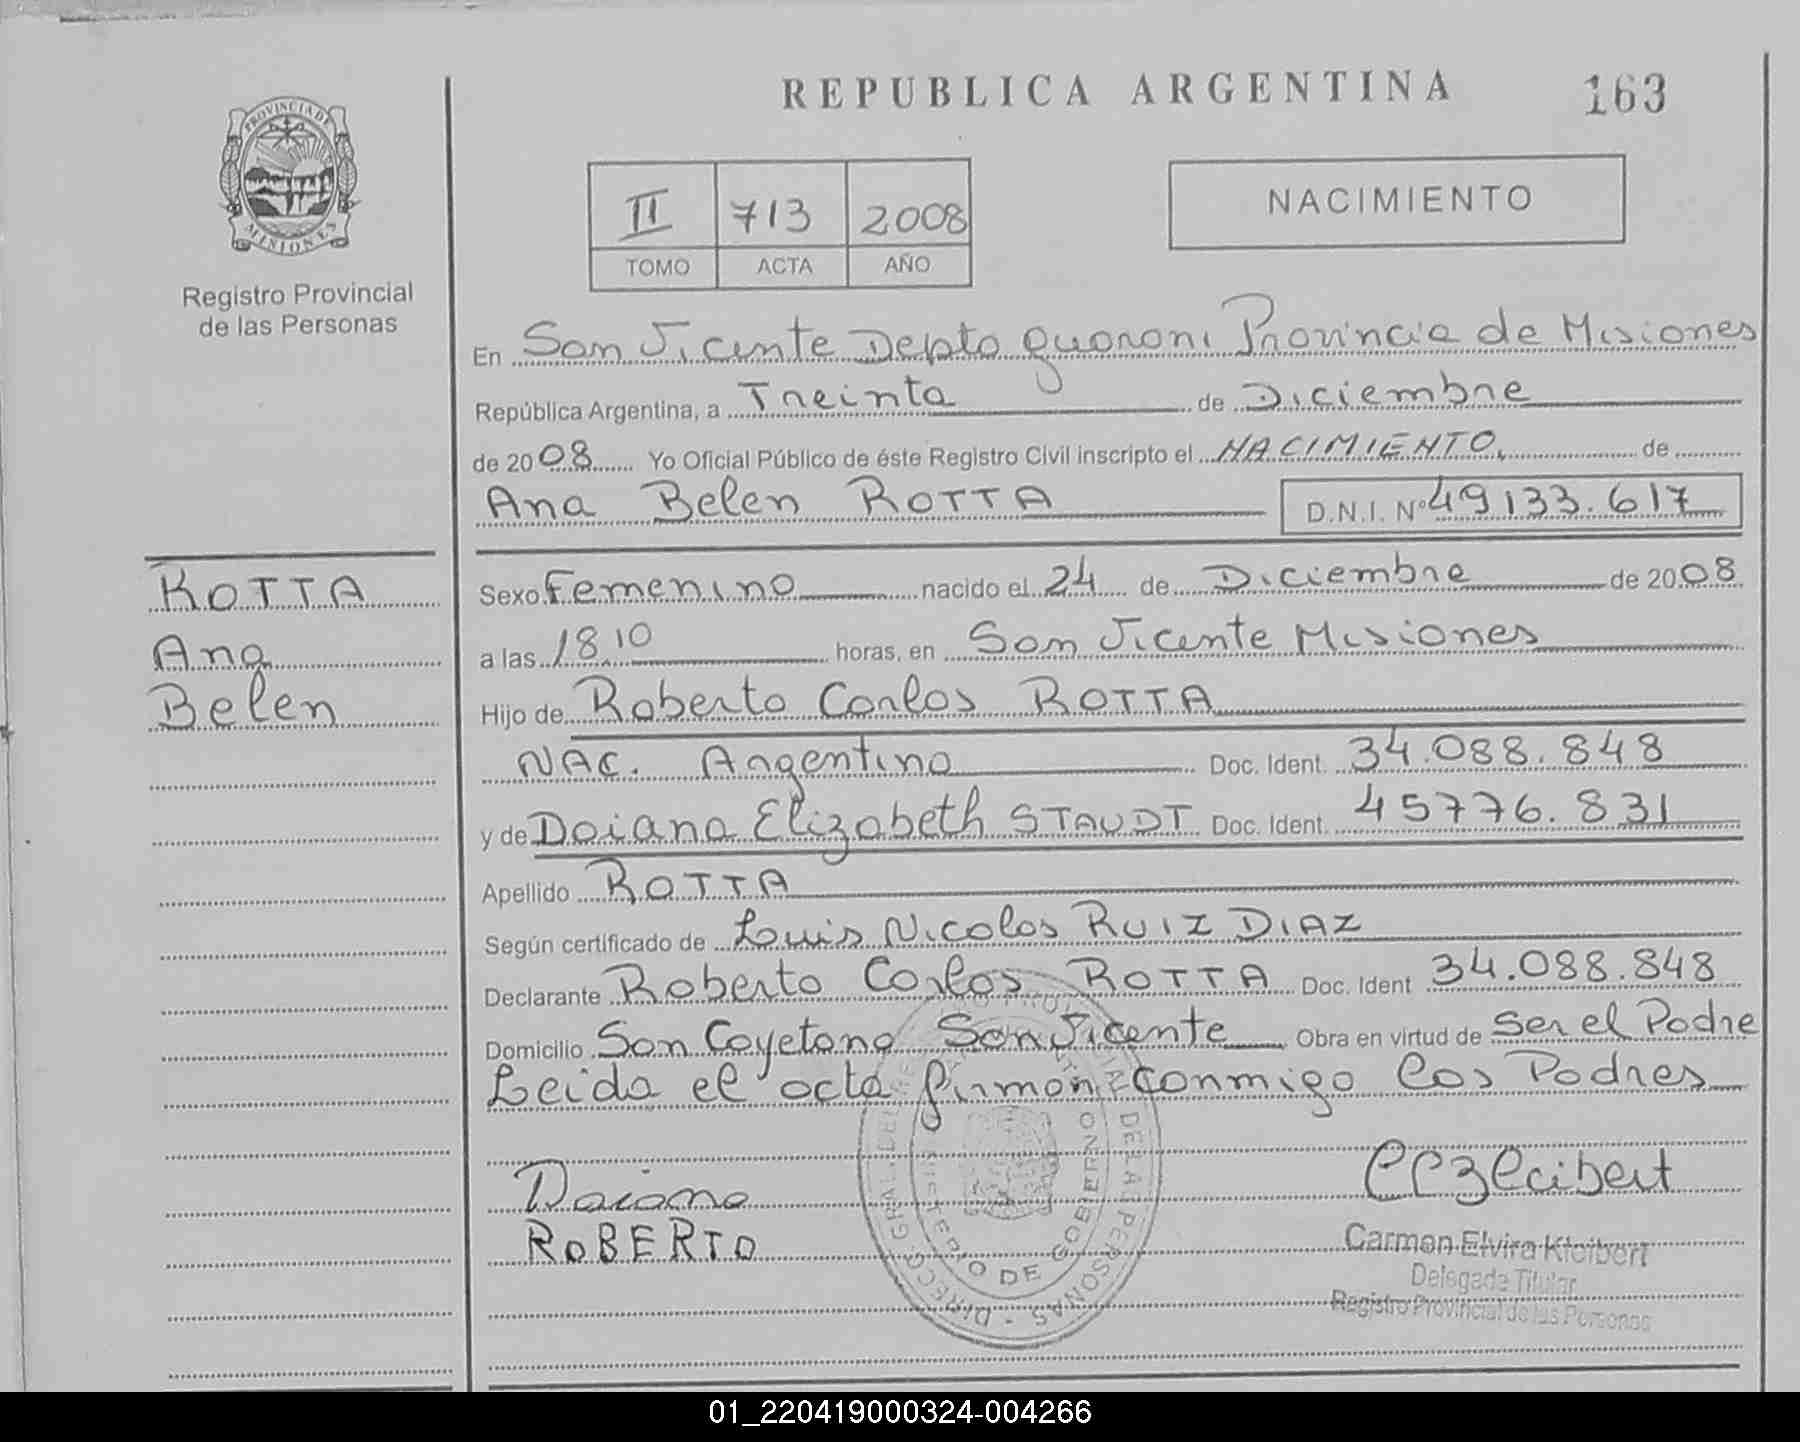 REPUBLICA ARGENTINA 163
PROVINCIA DE MISIONES
Registro Provincial
de las Personas
II 713 2008
TOMO ACTA AÑO
NACIMIENTO
En San Vicente Depto guarani Provincia de Misiones
República Argentina, a Treinta de Diciembre
de 2008 Yo Oficial Público de éste Registro Civil inscripto el NACIMIENTO, de
Ana Belen ROTTA D.N.I. Nº 49133.617
ROTTA
Ana
Belen
Sexo Femenino nacido el 24 de Diciembre de 2008
a las 18,10 horas, en San Vicente Misiones
Hijo de Roberto Carlos ROTTA
NAC. Argentina Doc. Ident. 34.088.848
y de Daiana Elizabeth STAUDT Doc. Ident. 45776.831
Apellido ROTTA
Según certificado de Luis Nicolas RUIZ DIAZ
Declarante Roberto Carlos ROTTA Doc. Ident 34.088.848
Domicilio San Cayetano San Vicente Obra en virtud de Ser el Padre
Leida el acta firman conmigo los Padres
Daiana
ROBERTO
Carmen Elvira Kleibert
Delegada Titular
Registro Provincial de las Personas
01_220419000324-004266